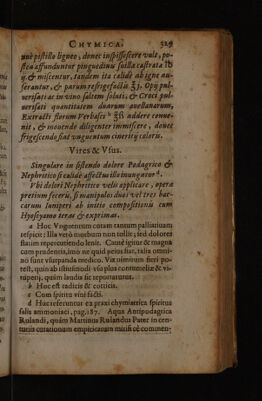 CHYMICA. 329
uuè pistillo ligneo, donec inspissescere vult, po-
stea affunduntur pinguedini suillæ castratæ ℔
ij. & miscentur, tandem ita calidè ab igne au-
ferantur, & parum refrigefactis ʒj. Opij pul-
uerisati ac in vino saltem soluti, & Croci pul-
uerisati quantitatem duarum auellanarum,
Extracti florum Verbasci ʒß addere conue-
nit, & mouendo diligenter immiscere, donec
frigescendo fiat vnguentum cinericij coloris.
Vires & Vsus.
Singulare in sistendo dolore Podagrico &
Nephritico si calidè affectus illo inungatur d.
Vbi dolori Nephritico velis applicare, opera
pretium fecerii, si manipulos duos vel tres bac-
carum Iuniperi ab initio compositionis cum
Hyoscyamo teras & exprimas.
a Hoc Vnguentum coram tantùm palliatiuam
respicit: Illa verò morbum non tollit; sed dolores
statim repercutiendo lenit. Cautè igitur & magna
cum prudentia, imò ne quid peius fiat, talia omni-
nò sunt vsurpanda medico. Vix nimirum fieri po-
test, quin ab istiusmodi vsu plus contumeliæ & vi-
tuperij, quàm laudis sic reportaturus.
b Hoc est radicis & corticis.
c Cum spiritu vini facti.
d Huc referuntur ex praxi chymiatrica spiritus
salis ammoniaci, pag.187. Aqua Antipodagrica
Rulandi, quàm Martinus Rulandus Pater in cen-
turiis curationum empiricarum misit cẽ commen-